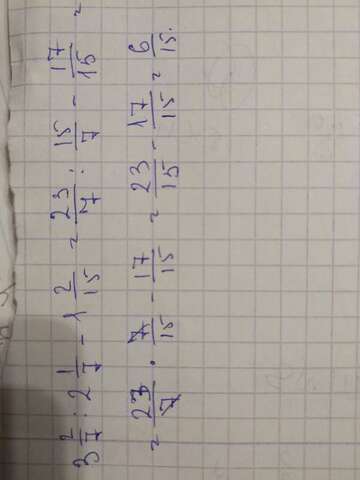 3 2/7 : 2 1/7 - 1 2/15 = 23/7 : 15/7 - 17/15 =
= 23/7 · 7/15 - 17/15 = 23/15 - 17/15 = 6/15.